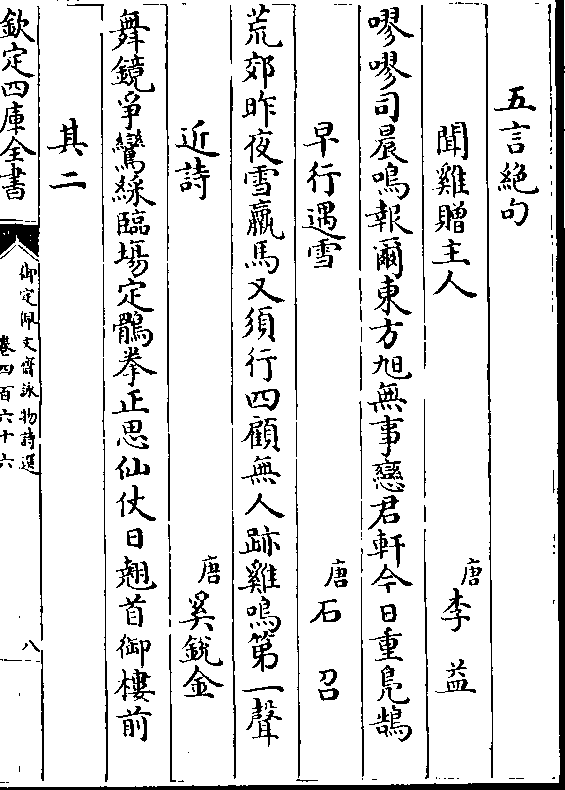 五言絶句
聞雞贈主人 唐 李益
嘐嘐司晨鳴報爾東方旭無事戀君軒今日重鳬鵠
早行遇雪 唐 石召
荒郊昨夜雪羸馬又須行四顧無人跡雞鳴第一聲
近詩 唐 吳銳金
舞鏡爭鸞綵臨場定鶻拳正思仙仗日翹首御樓前
其二
欽定四庫全書
御定佩文齋詠物詩選
卷四百六十六
八